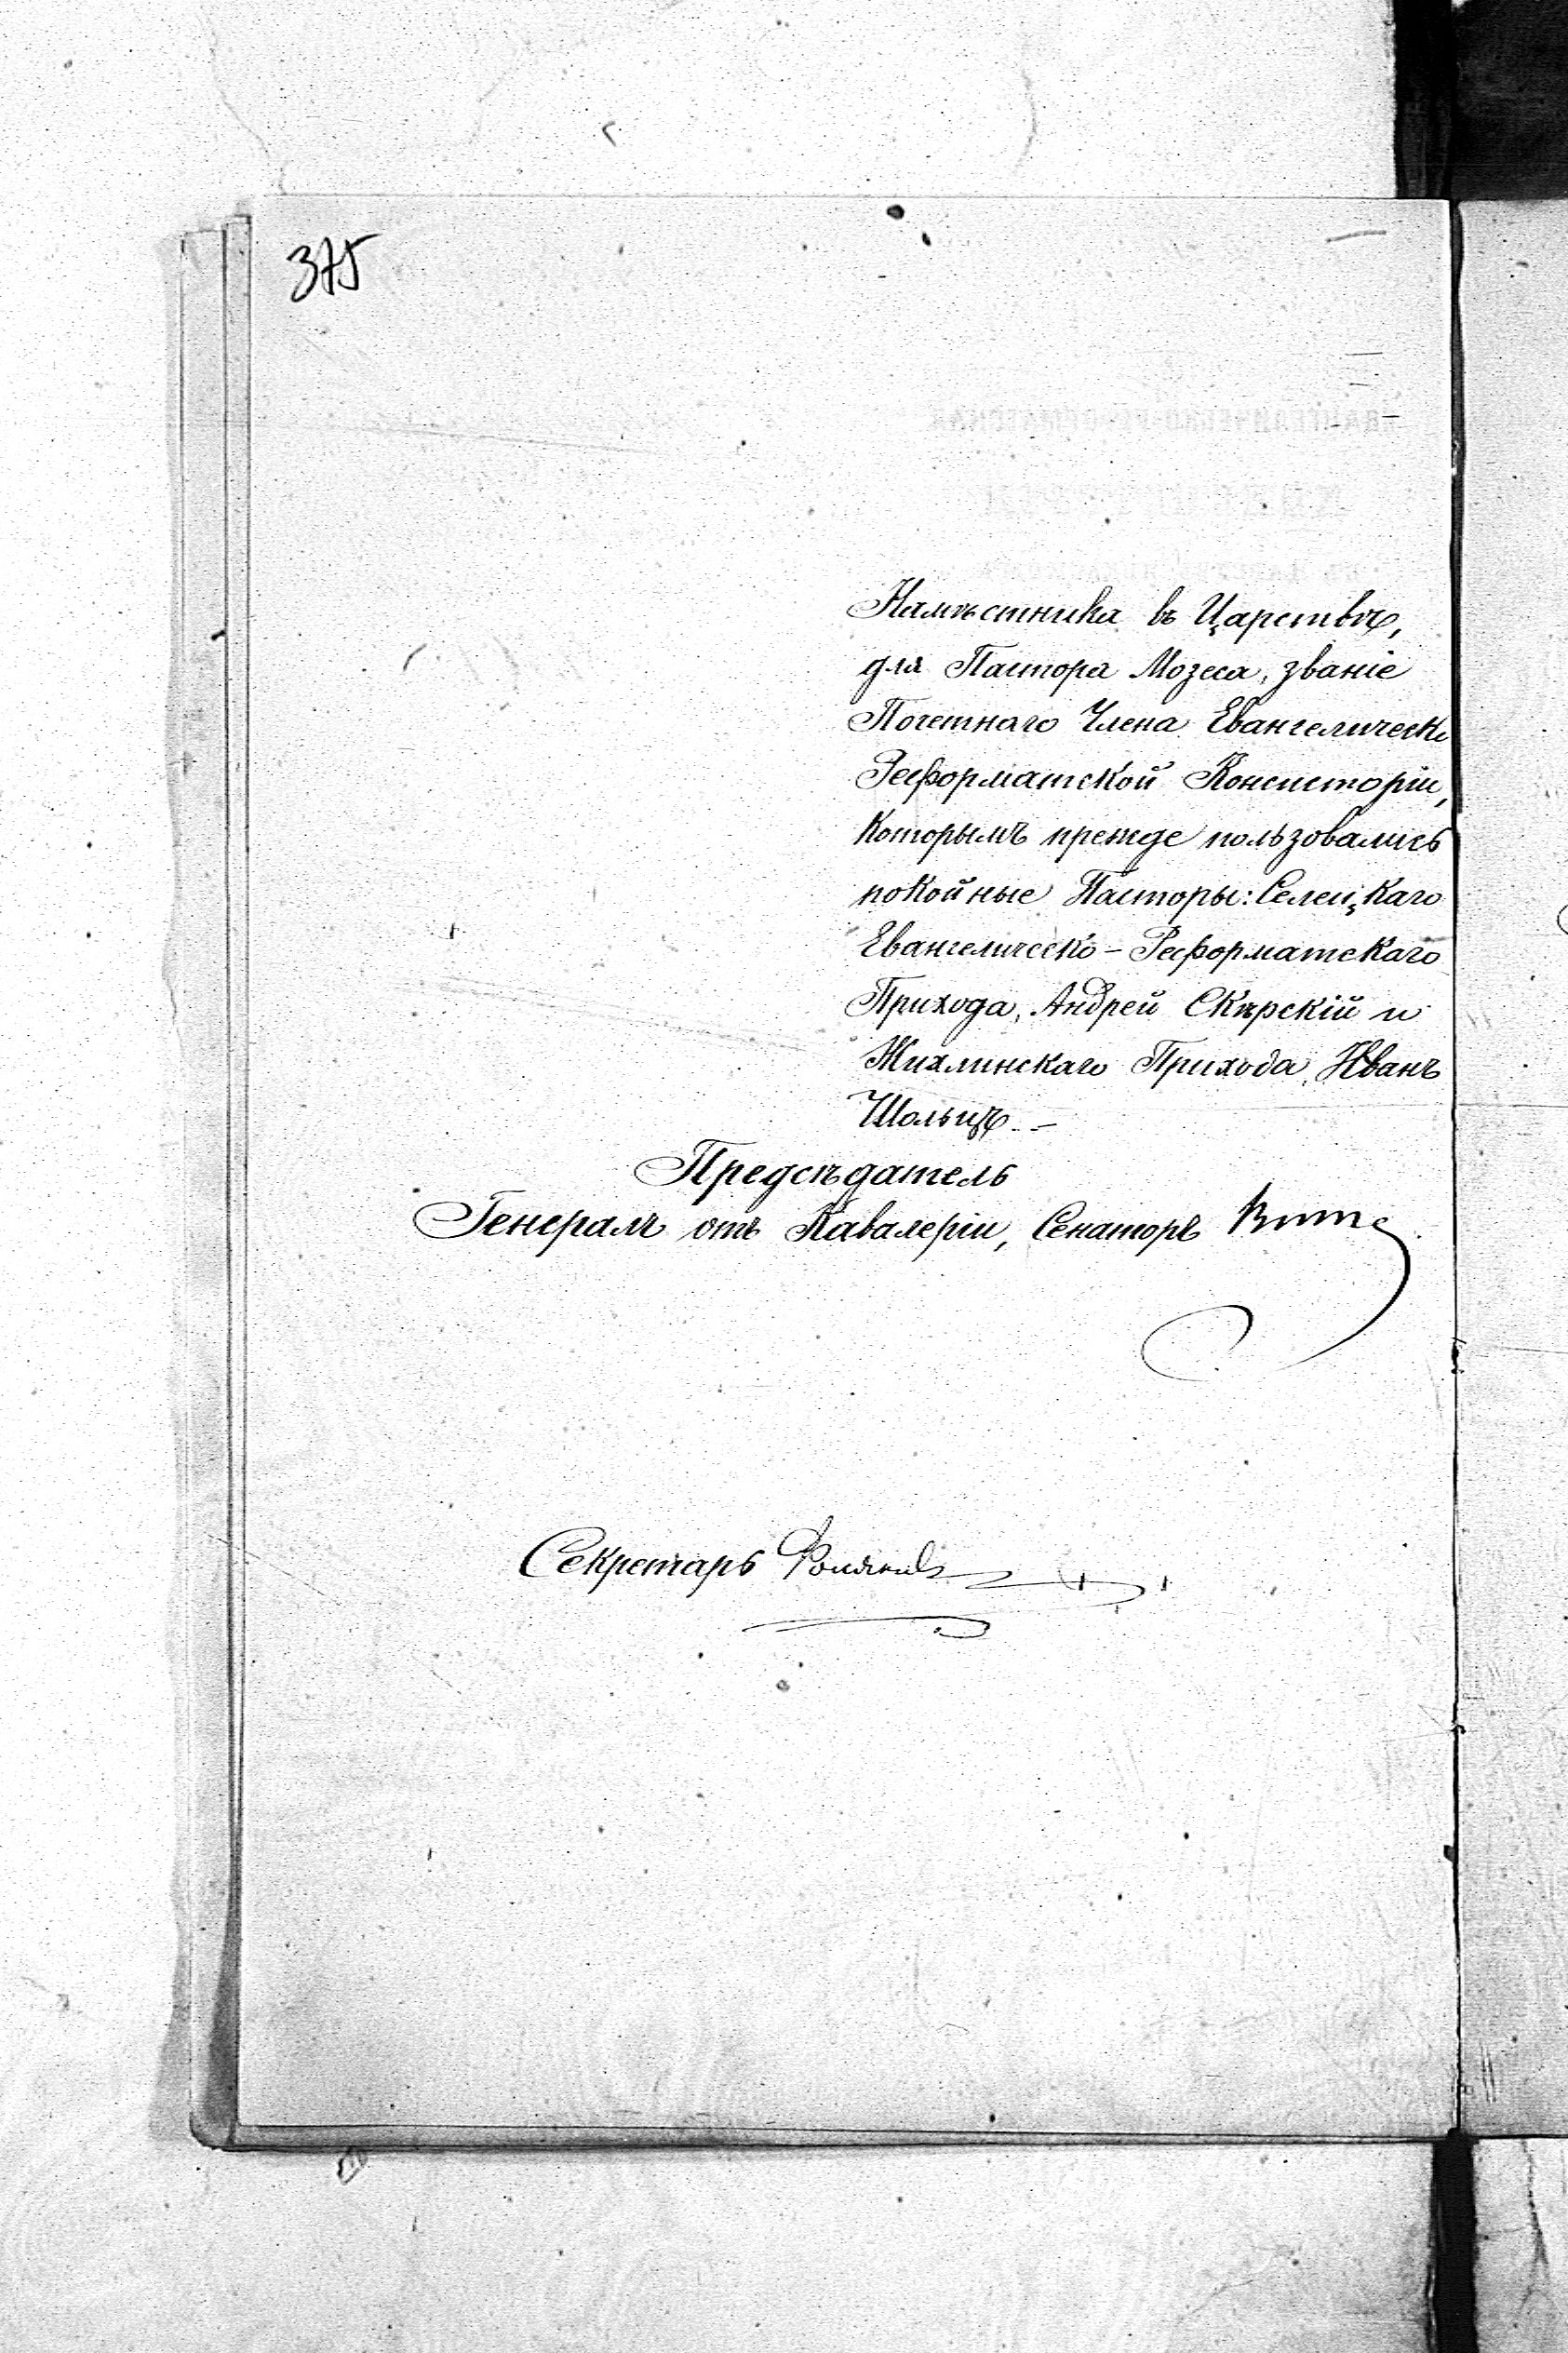 375
Намѣстника въ Царствѣ,
для Пастора Мозеса, званіе
Почетнаго Члена Евангелическо
Реформатской Консисторіи,
которымъ прежде пользовались
покойные Пасторы: Селецкаго
Евангелическо-Реформатскаго
Прихода, Андрей Скѣрскій и
Жихлинскаго Прихода, Иванъ
Шольцъ. —
Предсѣдатель
Генералъ отъ Кавалеріи, Сенаторъ Витте
Секретарь